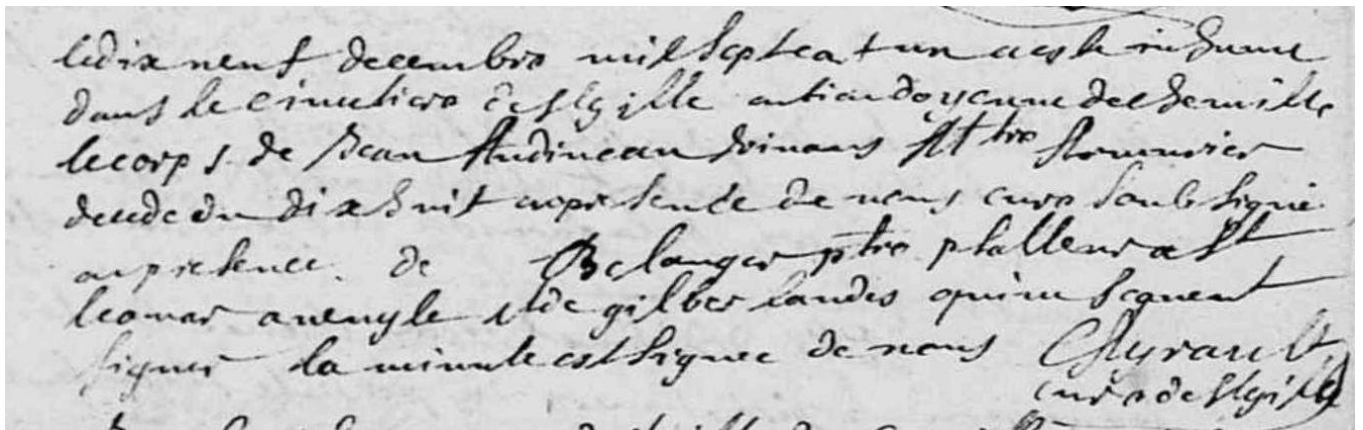 le dix neuf decembre mil sept cent un a este inhumé
dans le cimetiere de st gille antien doyenne de
le corps de Jean Audineau vivant
decede du dix huit en presence de nous curé soubs signé
en presence de Belanger ptre st
leonar aveugle et de gilber landes qui ne scavent
signer la minute est signee de nous Eyrault
curé de st gille